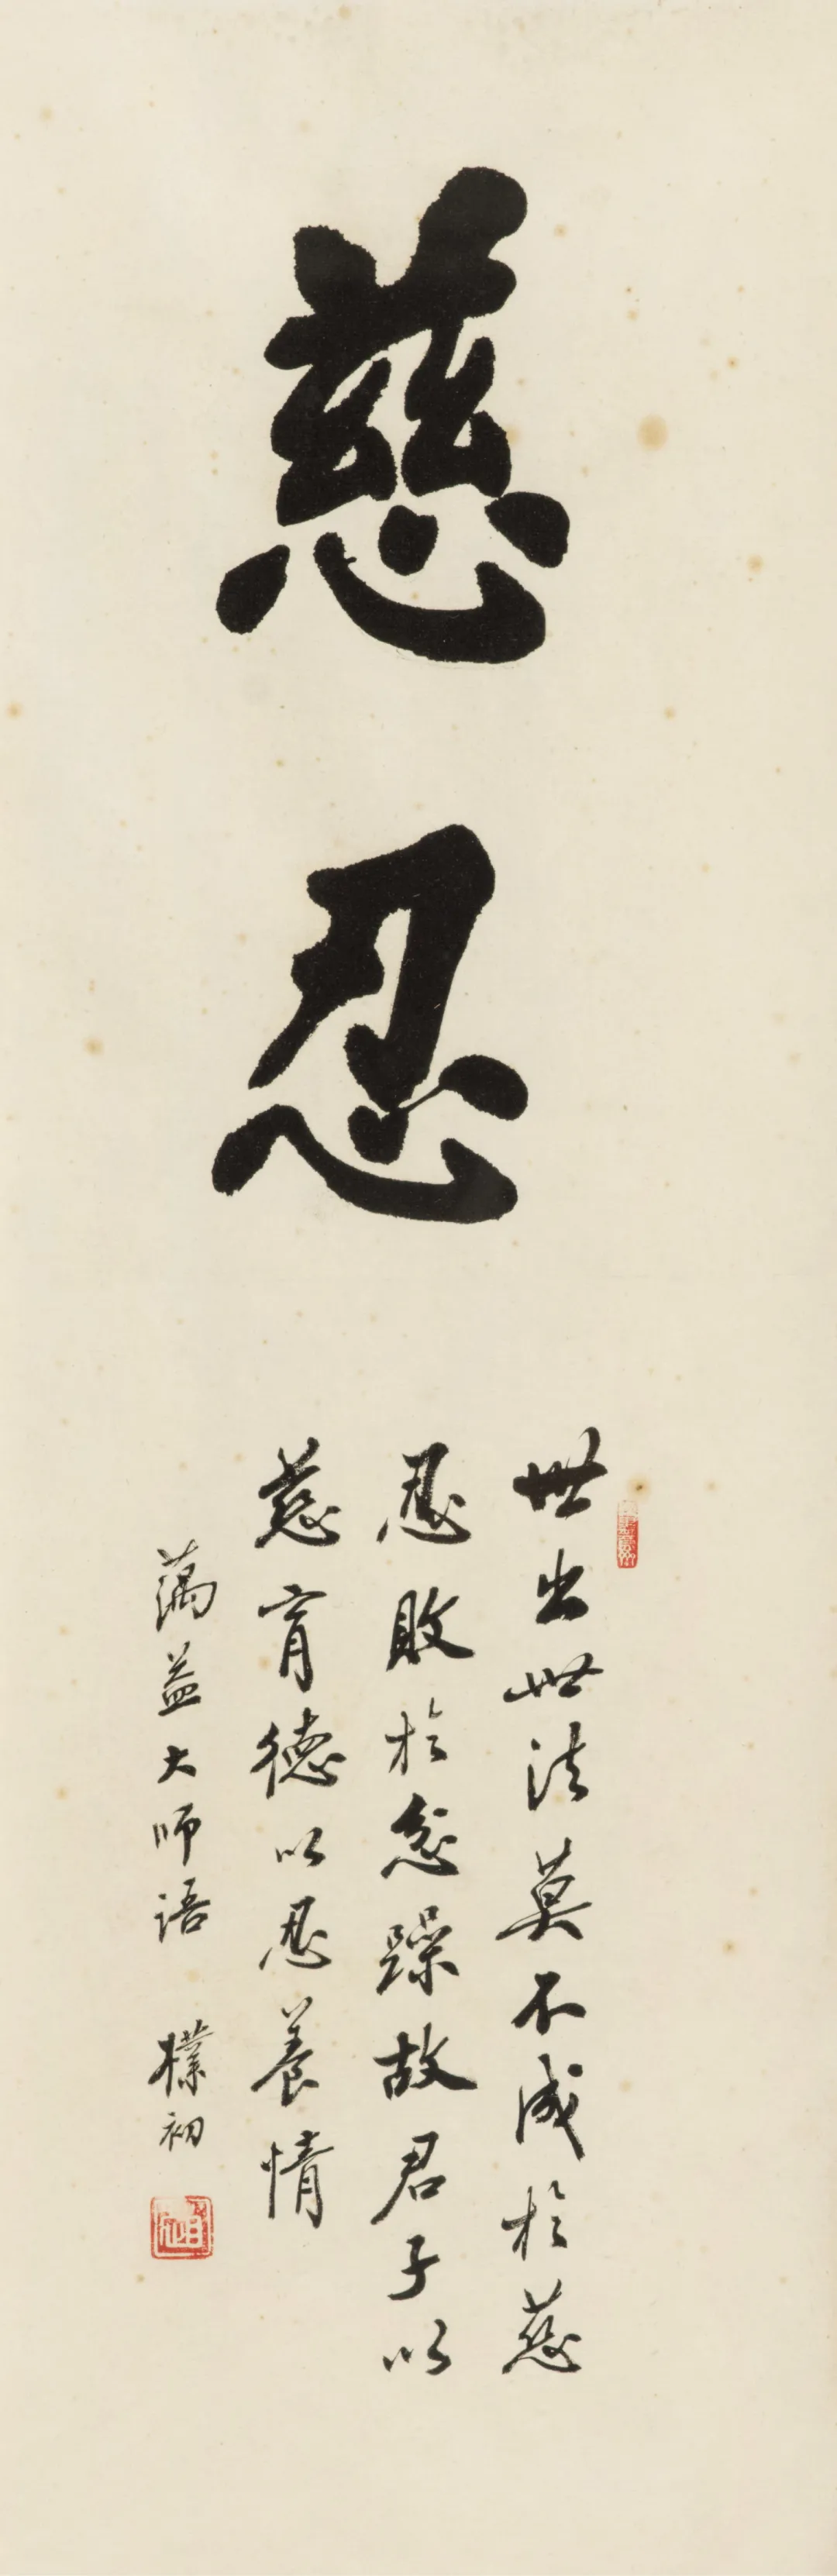 慈忍
世出世法莫不成於慈
忍敗於忿躁故君子以
慈育德以忍養情
蕅益大師語 樸初